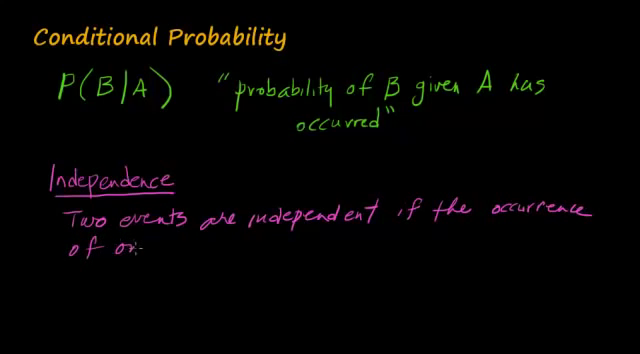 Conditional Probability
P(B/A) "probability of B given A has
occurred"
Independence
Two events are independent if the occurrence
of on